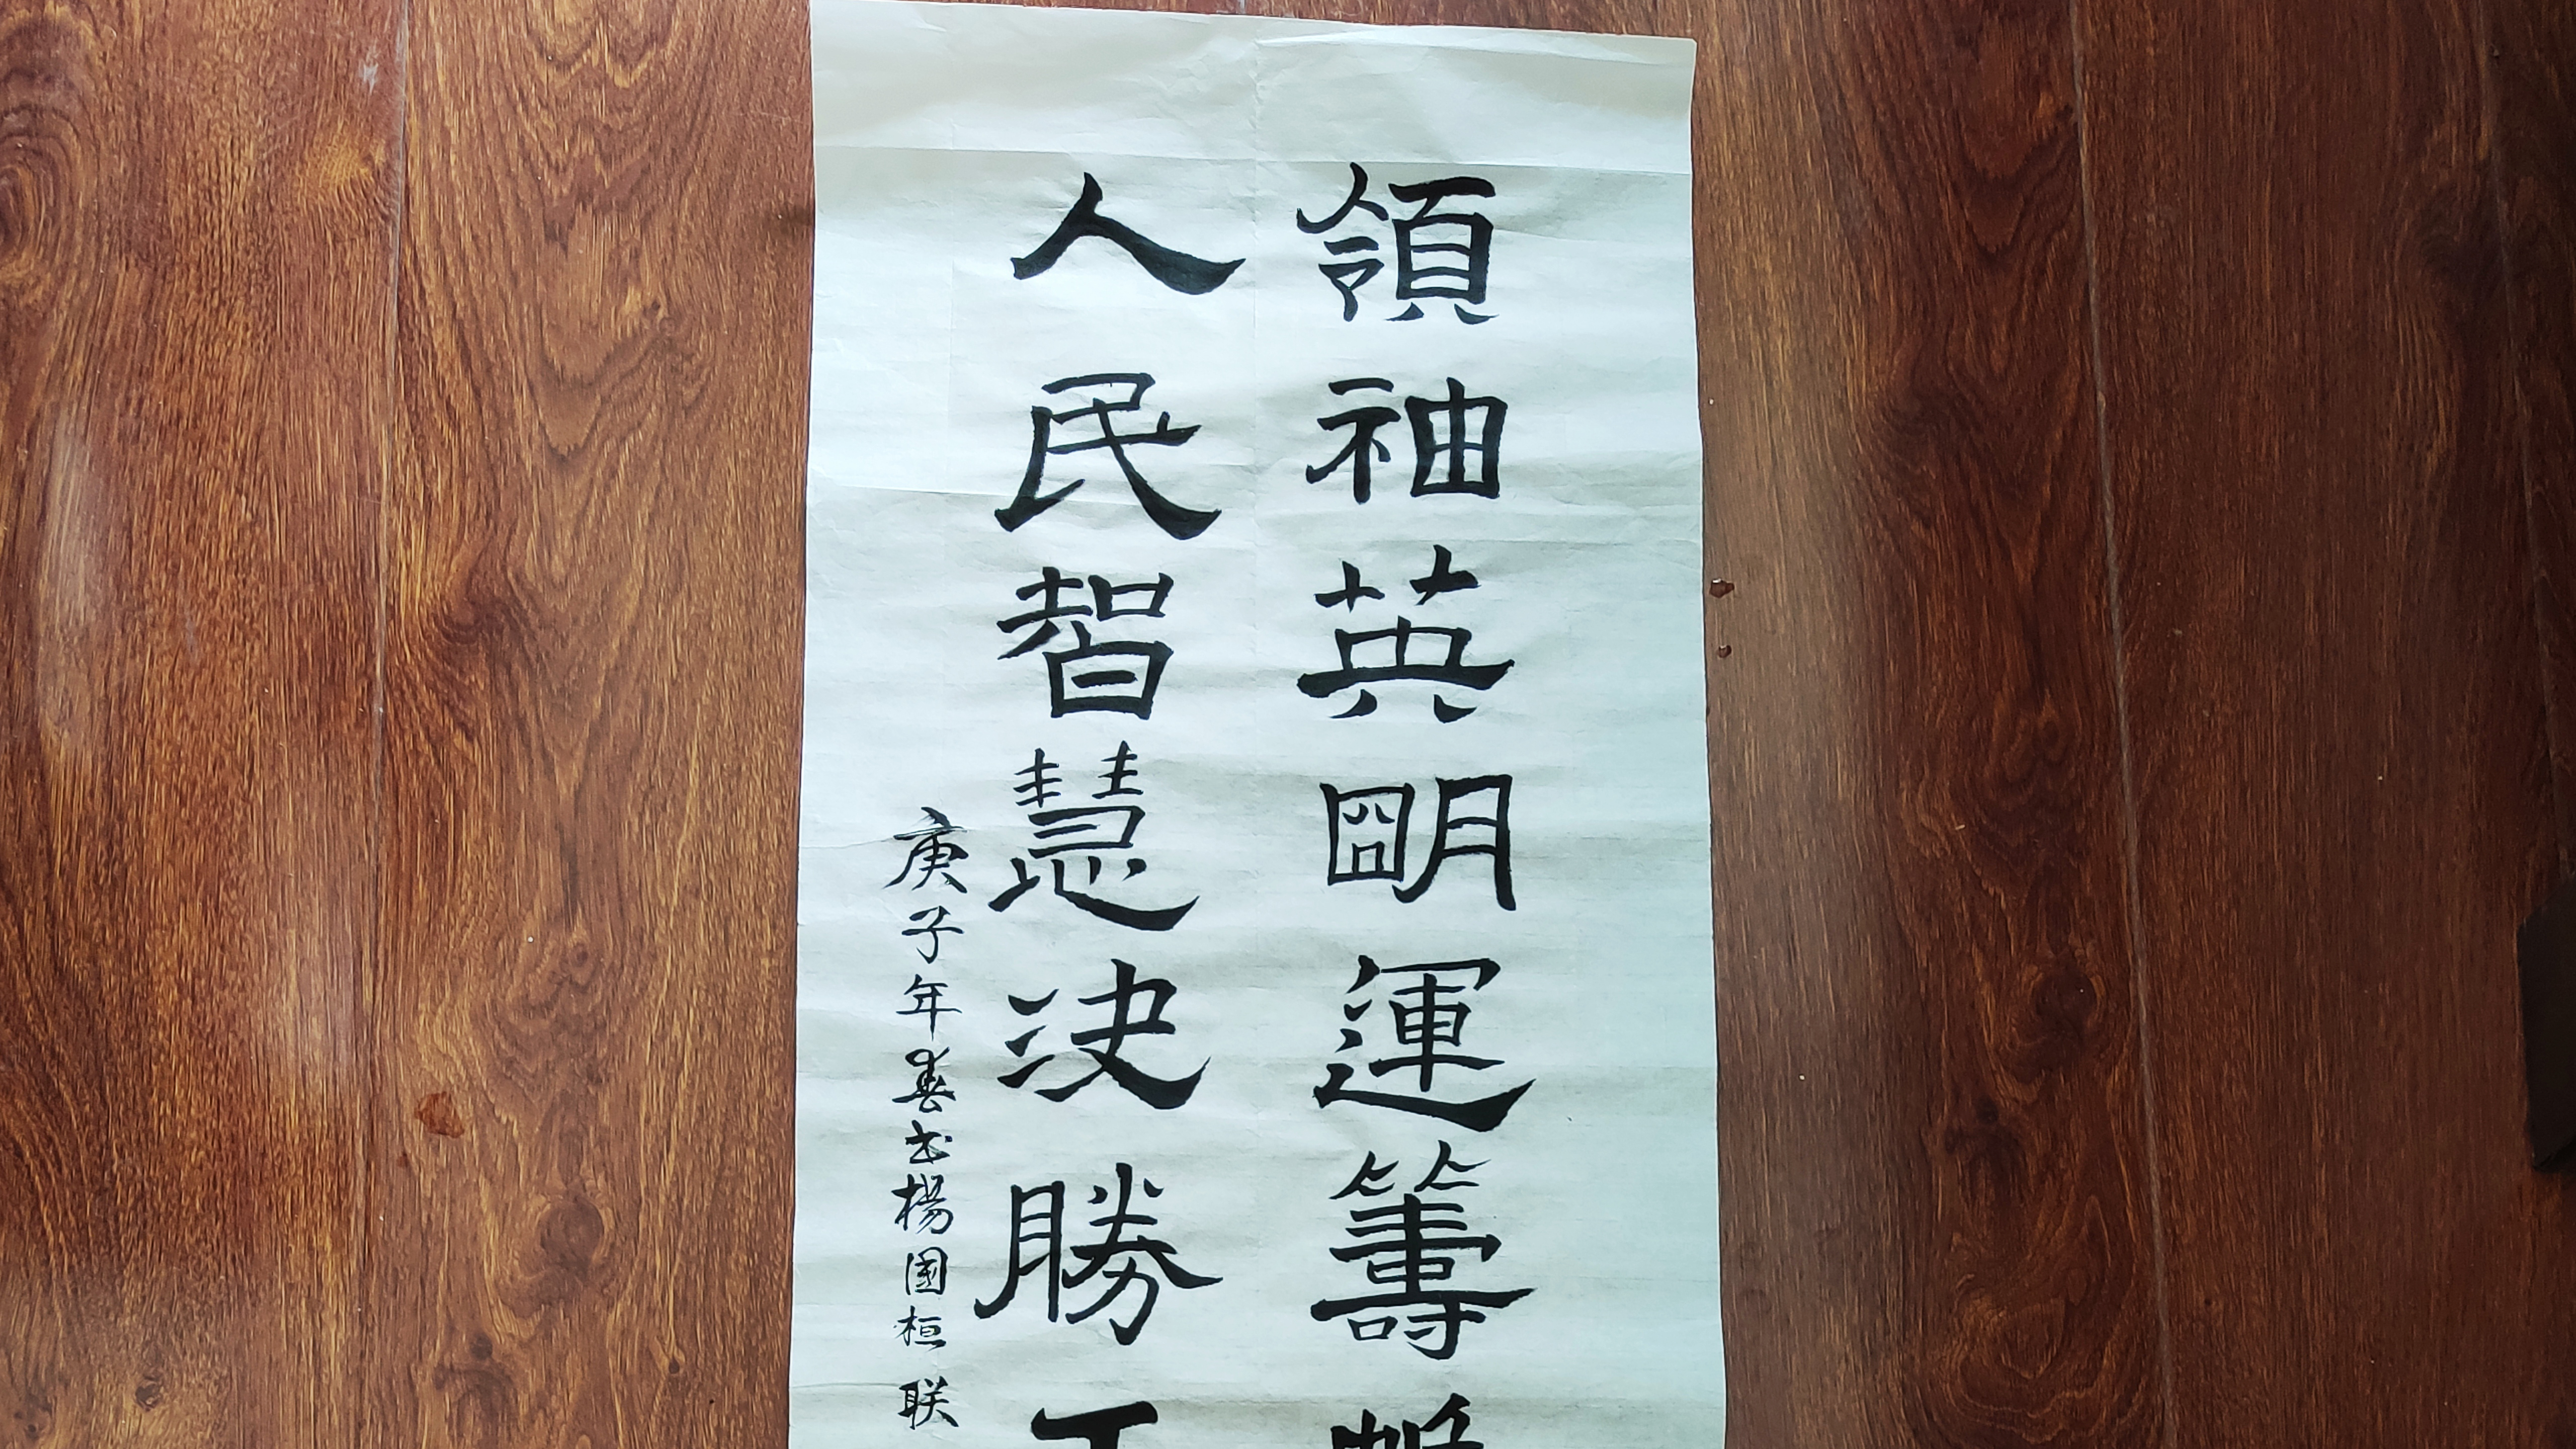 領袖英明運籌帷
人民智慧决勝
庚子年春书楊國桓联